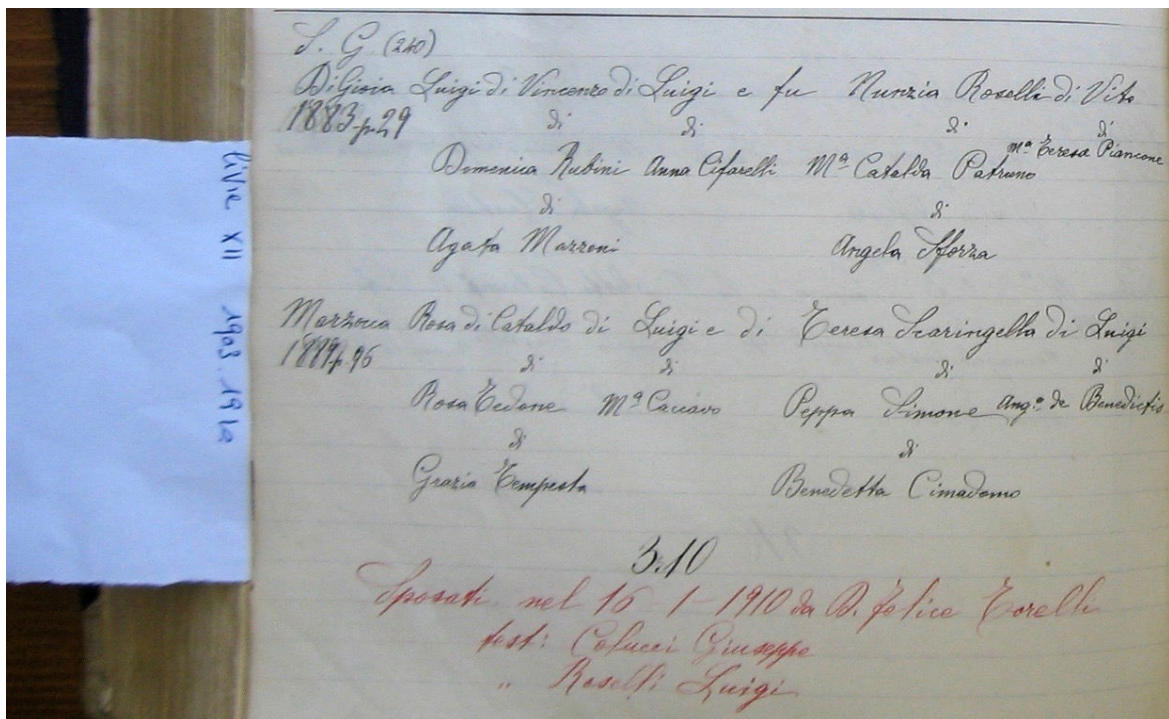 S. G. (240)
Di Gioia Luigi di Vincenzo di Luigi e fu Nunzia Roselli di Vito
1883 p. 29 di di di di
Domenica Rubini Anna Cifarelli Mª Catalda Patruno mª Teresa Piancone
di di
Agata Marroni Angela Sforza
Marzocca Rosa di Cataldo di Luigi e di Teresa Scaringella di Luigi
1889 p. 96 di di di di
Rosa Tedone Mª Caccavo Peppa Simone Ang.ª de Benedictis
di di
Grazia Tempesta Benedetta Cimadomo
3.10
Sposati nel 16-1-1910 da D. Felice Torelli
test: Colucci Giuseppe
" Roselli Luigi
livre XII 1903.1910